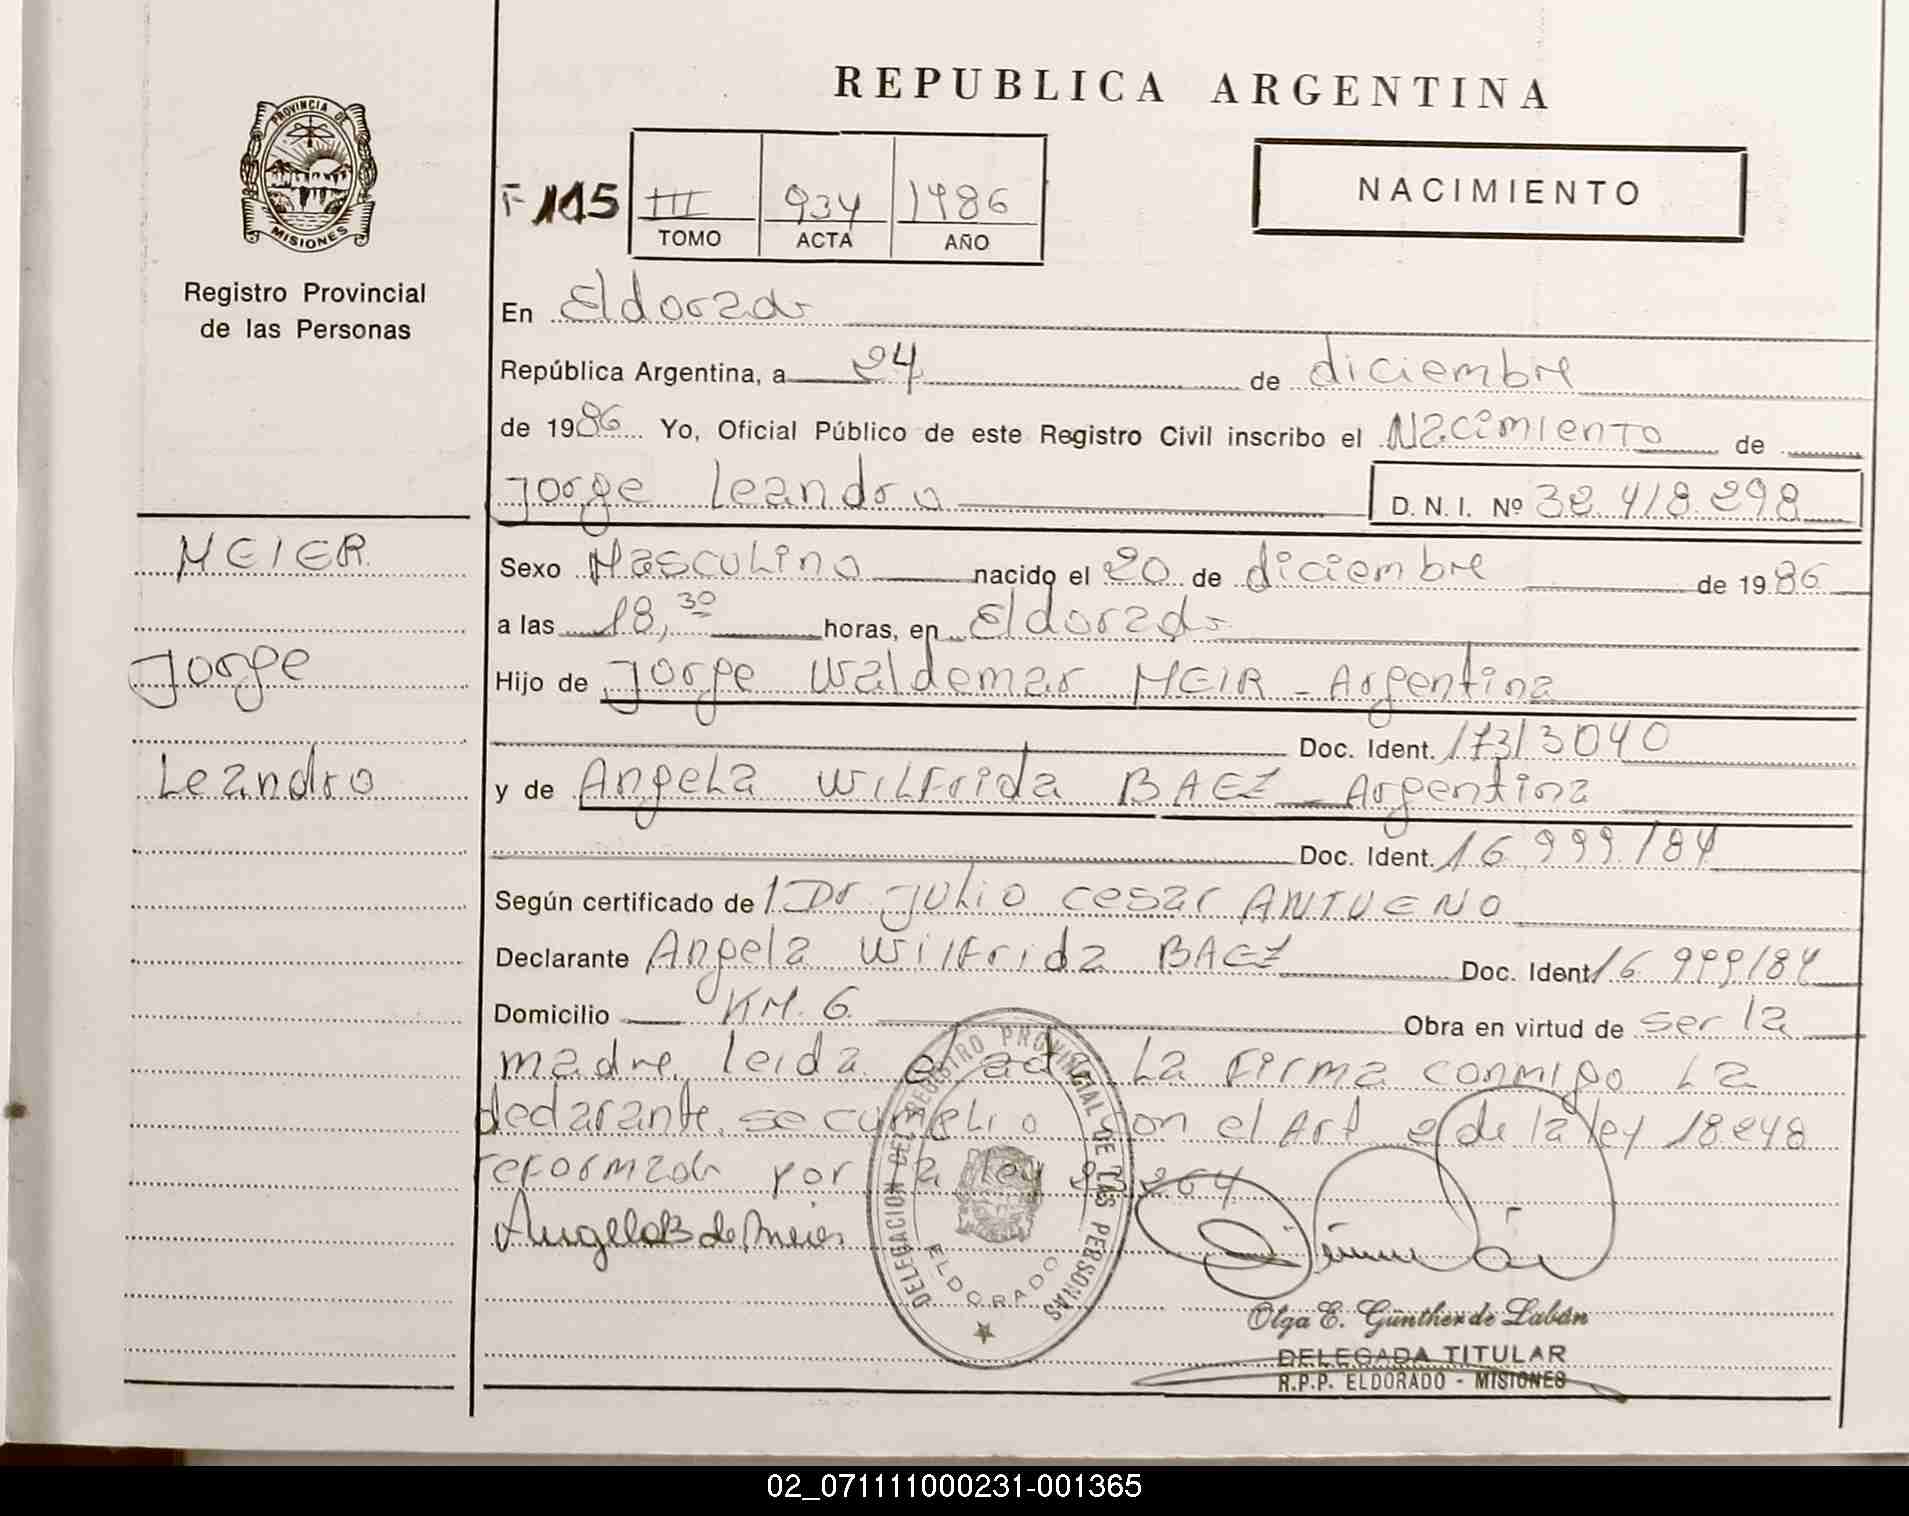 REPUBLICA ARGENTINA
PROVINCIA DE
MISIONES
Registro Provincial
de las Personas
F 115
III 934 1986
TOMO ACTA AÑO
NACIMIENTO
En Eldorado
República Argentina, a 24 de diciembre
de 1986 Yo, Oficial Público de este Registro Civil inscribo el Nacimiento de
Jorge Leandro D. N. I. Nº 32.418.298
MEIER
Jorge
Leandro
Sexo Masculino nacido el 20 de diciembre de 1986
a las 18,30 horas, en Eldorado
Hijo de Jorge Waldemar MEIR - Argentina
Doc. Ident. 17313040
y de Angela Wilfrida BAEZ - Argentina
Doc. Ident. 16.999.184
Según certificado de / Dr Julio Cesar ANTUENO
Declarante Angela Wilfrida BAEZ Doc. Ident 16.999184
Domicilio KM. 6 Obra en virtud de ser la
madre leida el acta La firma conmigo La
declarante. se cumplio con el Art 2 de la ley 18248
reformada por la ley 23.264
Angela B de Meier
DELEGACION DEL REGISTRO PROVINCIAL DE LAS PERSONAS
ELDORADO
Olga E. Günther de Labán
DELEGADA TITULAR
R.P.P. ELDORADO - MISIONES
02_071111000231-001365